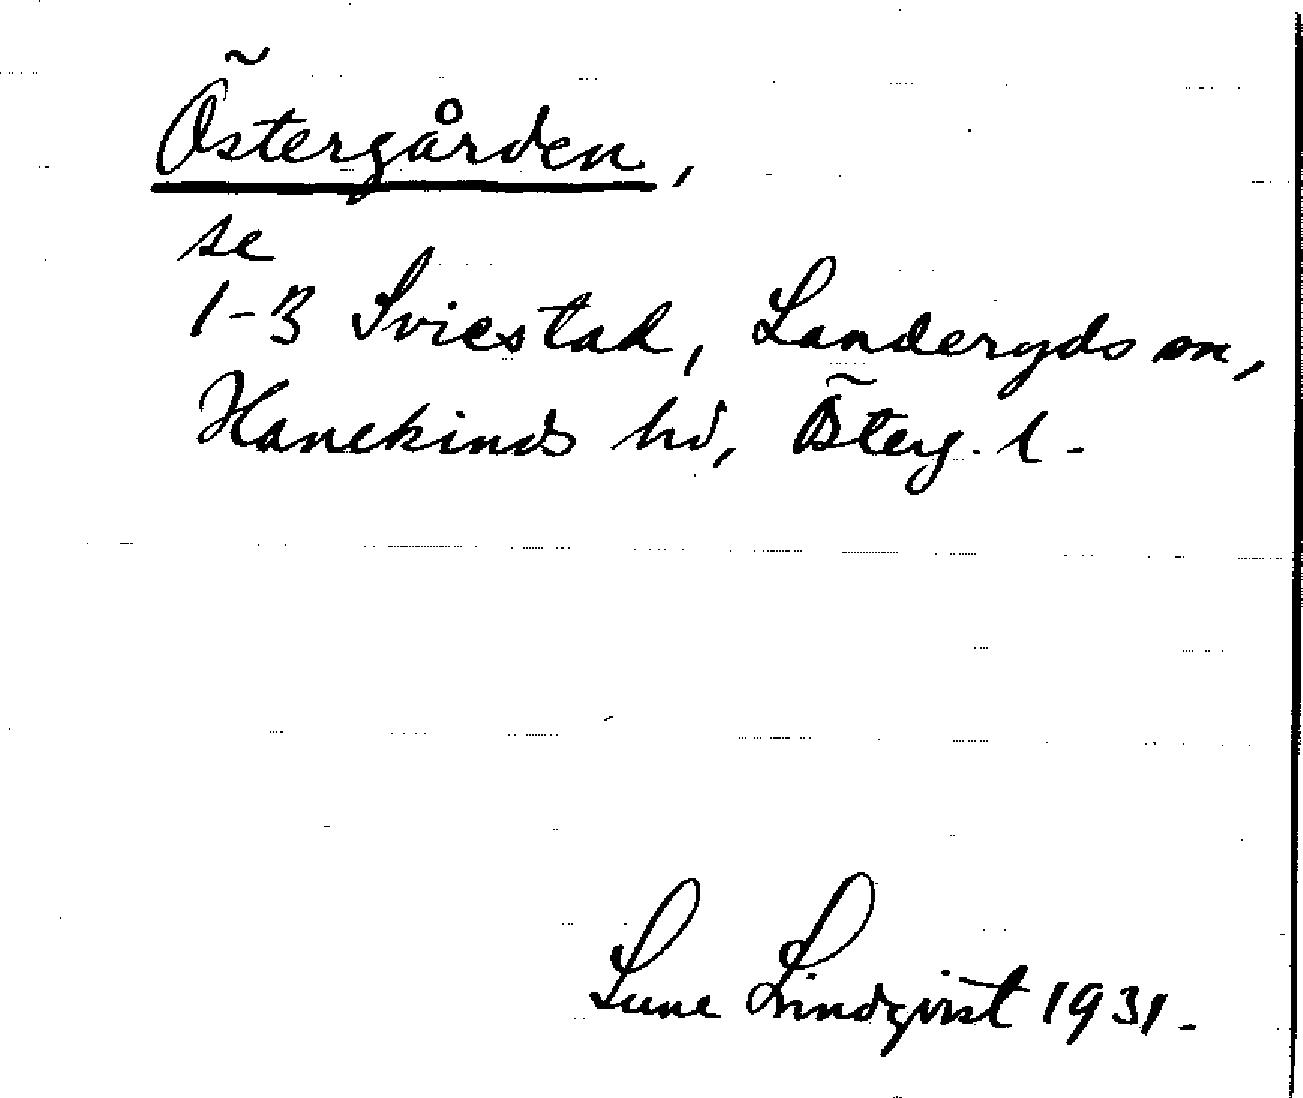 Östergården,
se
1-3 Sviestad, Landeryds sn,
Hanekinds hd, Österg. l.
Sune Lindqvist 1931.